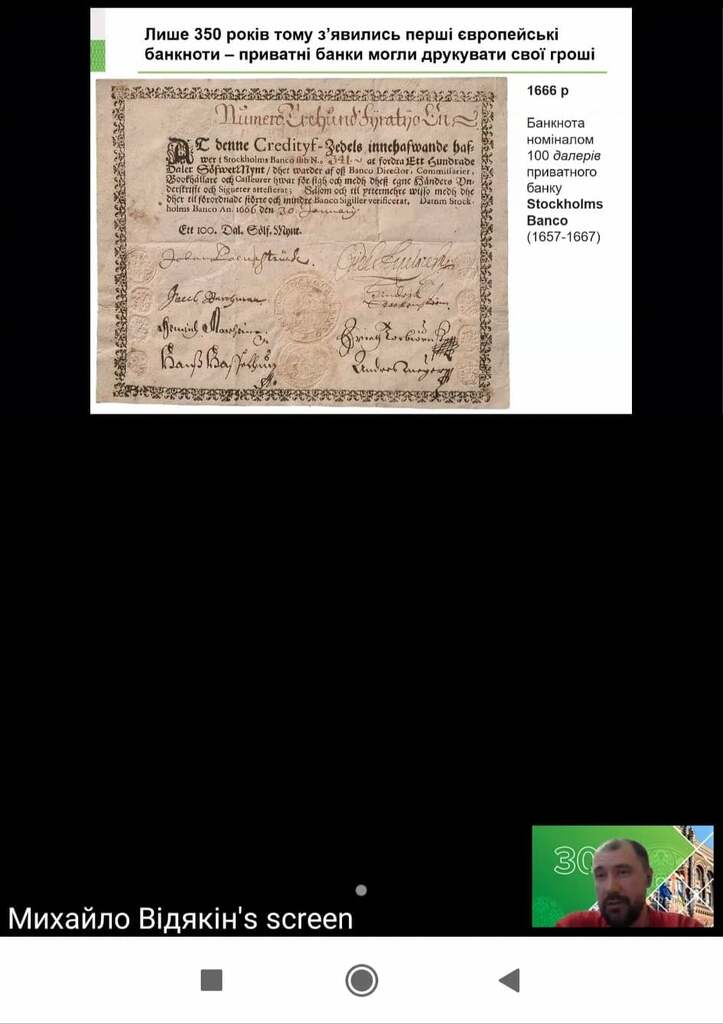 Лише 350 років тому з’явились перші європейські
банкноти – приватні банки могли друкувати свої гроші
1666 р
Банкнота
номіналом
100 далерів
приватного
банку
Stockholms
Banco
(1657-1667)
AT denne Credityf-Zedels innehafwande haf-
wer i Stockholms Banco sub N.. 341 at fordra Ett Hundrade
Daler Söfwer Mynt / dher warder af oß Banco Director, Commissarier,
Bookhållare och Casseurer hwar för sigh och medh dheß egne Händers Un-
derskrifft och Signeter attesterat; Såsom och til yttermehre wisso medh dhe
dher til förordnade större och mindre Banco Sigiller verificerat, Datum Stock-
holms Banco An. 1666 den 30. January
Ett 100. Dal. Sölf. Mynt.
30
Михайло Відякін's screen